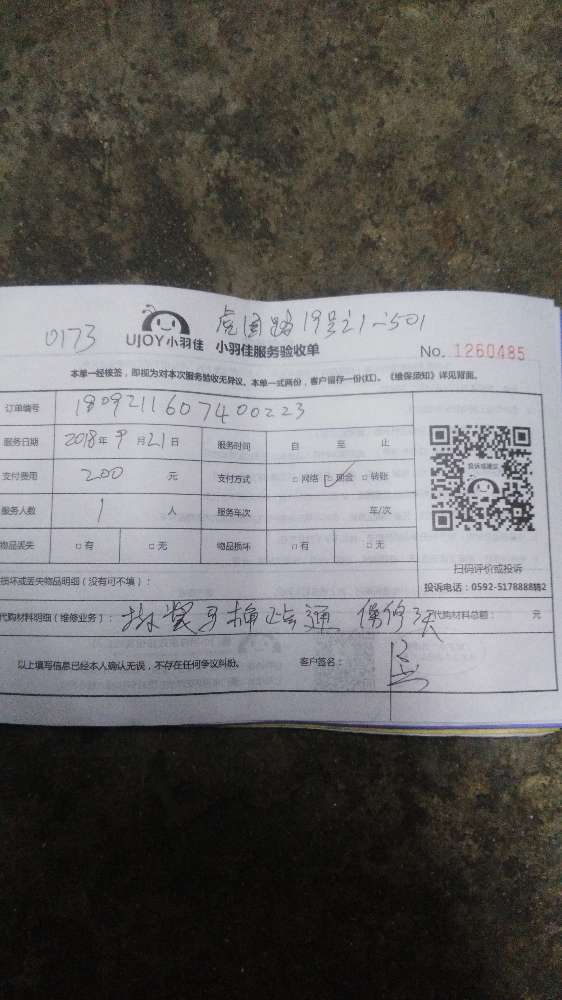 0173 虎园路19号之1-501
UJOY小羽佳 小羽佳服务验收单 No. 1260485
本单一经接签，即视为对本次服务验收无异议。本单一式两份，客户留存一份(红)。《维保须知》详见背面。
订单编号 1809211607400223
服务日期 2018年9月21日 服务时间 自 至 止
支付费用 200 元 支付方式 □网络 □现金 □转账
服务人数 1 人 服务车次 车/次
物品丢失 □有 □无 物品损坏 □有 □无
投诉或建议
扫码评价或投诉
损坏或丢失物品明细（没有可不填）：
投诉电话：0592-5178888转2
代购材料明细（维修业务）： 通 保修3天 代购材料总额： 元
以上填写信息已经本人确认无误，不存在任何争议纠纷。 客户签名：